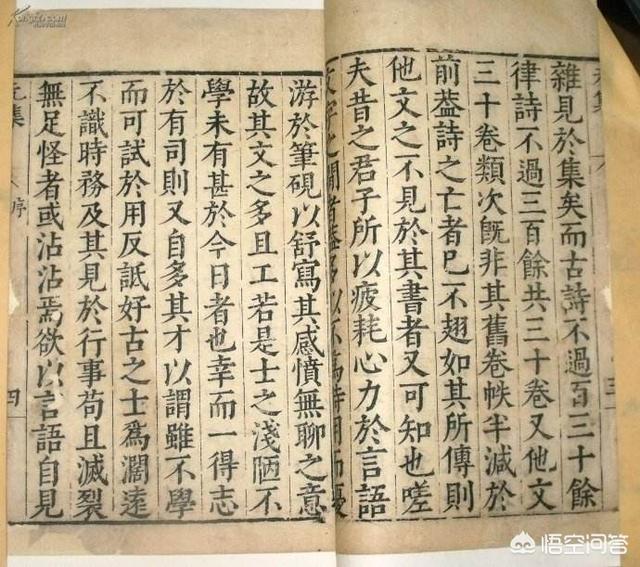 雜見於集矣而古詩不過百三十餘
律詩不過三百餘共三十卷又他文
三十卷類次旣非其舊卷帙半減於
前葢詩之亡者已不翅如其所傳則
他文之不見於其書者又可知也嗟
夫昔之君子所以疲耗心力於言語
文字之間者葢多以不爲時用而優
游於筆硯以舒寫其感憤無聊之意
故其文之多且工若是士之淺陋不
學未有甚於今日者也幸而一得志
於有司則又自多其才以謂雖不學
而可試於用反詆好古之士爲濶遠
不識時務及其見於行事苟且滅裂
無足怪者或沾沾焉欲以言語自見
元集 序 四
悟空问答